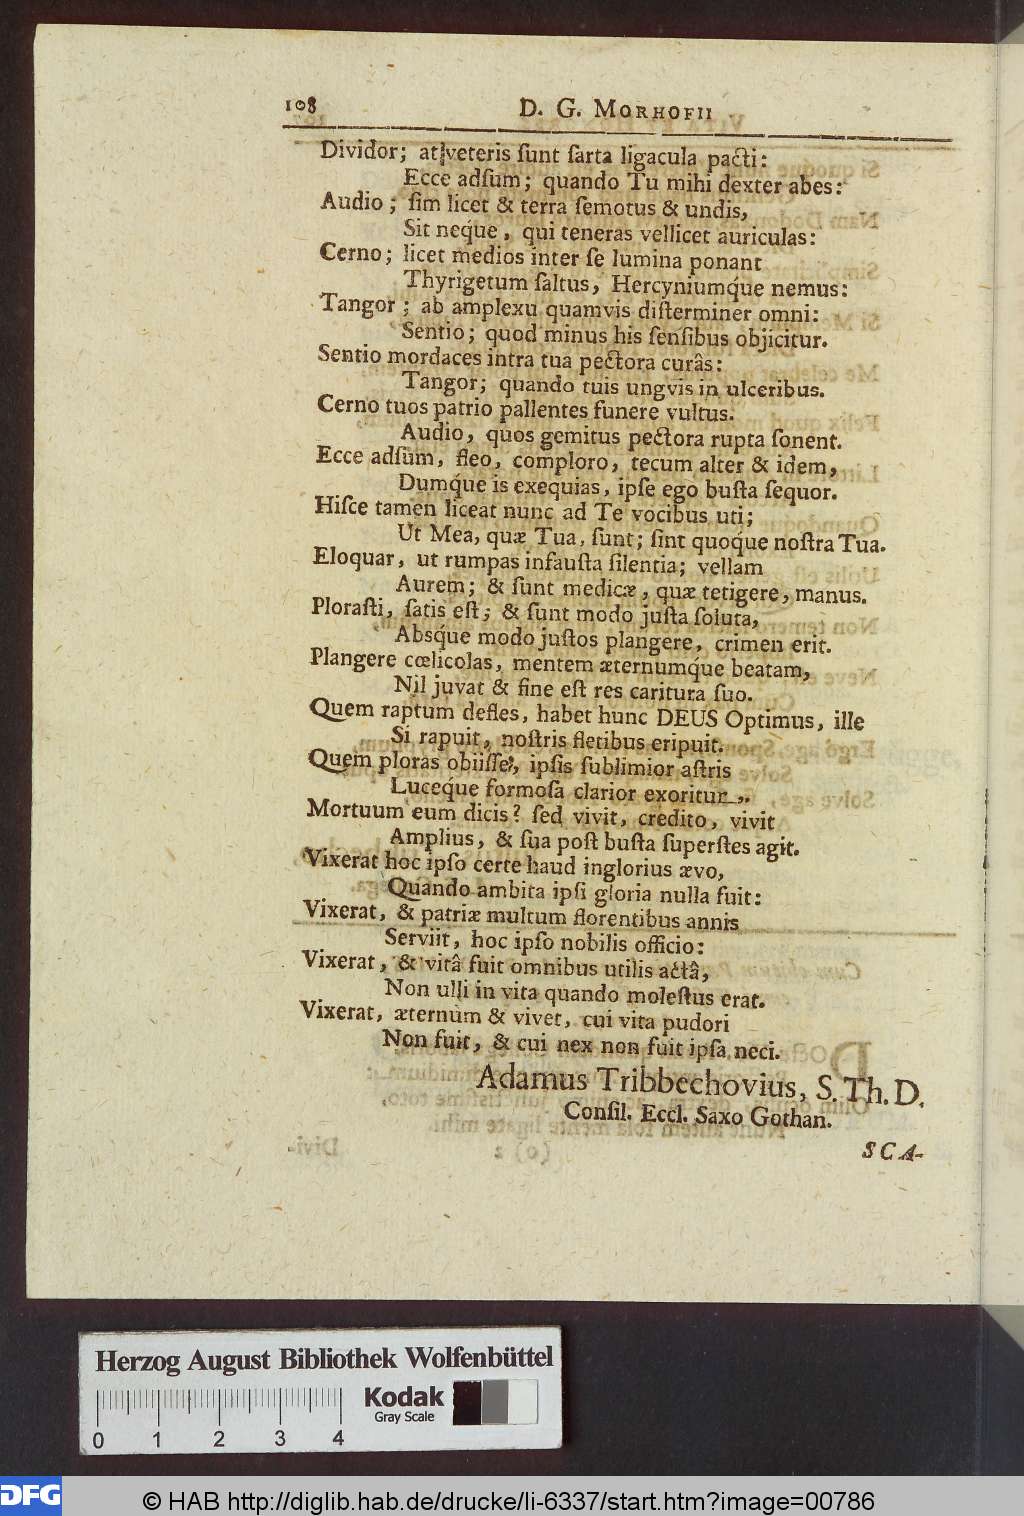 108
D. G. MORHOFII
Dividor; at veteris ſunt ſarta ligacula pacti:
Ecce adſum; quando Tu mihi dexter abes:
Audio; ſim licet & terra ſemotus & undis,
Sit neque, qui teneras vellicet auriculas:
Cerno; licet medios inter ſe lumina ponant
Thyrigetum ſaltus, Hercyniumq́ue nemus:
Tangor; ab amplexu quamvis diſterminer omni:
Sentio; quod minus his ſenſibus objicitur.
Sentio mordaces intra tua pectora curâs:
Tangor; quando tuis ungvis in ulceribus.
Cerno tuos patrio pallentes funere vultus.
Audio, quos gemitus pectora rupta ſonent.
Ecce adſum, fleo, comploro, tecum alter & idem,
Dumq́ue is exequias, ipſe ego buſta ſequor.
Hiſce tamen liceat nunc ad Te vocibus uti;
Ut Mea, quæ Tua, ſunt; ſint quoq́ue noſtra Tua.
Eloquar, ut rumpas infauſta ſilentia; vellam
Aurem; & ſunt medicæ, quæ tetigere, manus.
Ploraſti, ſatis eſt; & ſunt modo juſta ſoluta,
Absq́ue modo juſtos plangere, crimen erit.
Plangere cœlicolas, mentem æternumq́ue beatam,
Nil juvat & fine eſt res caritura ſuo.
Quem raptum defles, habet hunc DEUS Optimus, ille
Si rapuit, noſtris fletibus eripuit.
Quem ploras obiiſſe, ipſis ſublimior aſtris
Luceq́ue formoſa clarior exoritur.
Mortuum eum dicis? ſed vivit, credito, vivit
Amplius, & ſua poſt buſta ſuperſtes agit.
Vixerat hoc ipſo certe haud inglorius ævo,
Quando ambita ipſi gloria nulla fuit:
Vixerat, & patriæ multum florentibus annis
Serviit, hoc ipſo nobilis officio:
Vixerat, & vitâ fuit omnibus utilis actâ,
Non ulli in vita quando moleſtus erat.
Vixerat, æternùm & vivet, cui vita pudori
Non fuit, & cui nex non fuit ipſa neci.
Adamus Tribbechovius, S. Th. D.
Conſil. Eccl. Saxo Gothan.
SCA-
Herzog August Bibliothek Wolfenbüttel
Kodak
Gray Scale
0 1 2 3 4
DFG
© HAB http://diglib.hab.de/drucke/li-6337/start.htm?image=00786